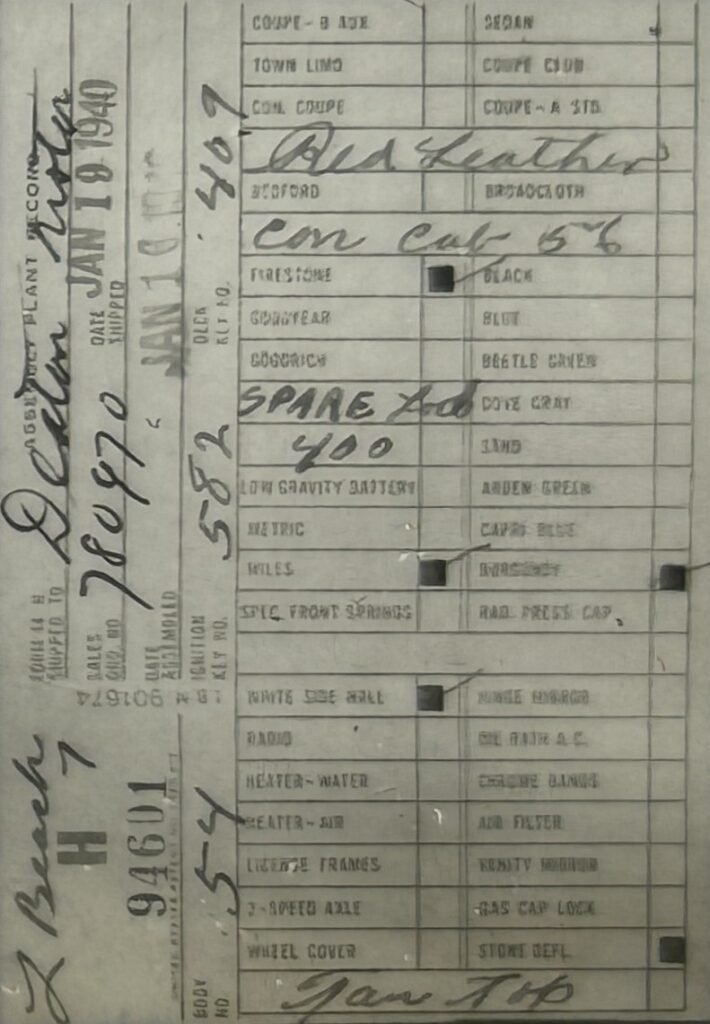 COUPE-B
SEDAN
TOWN LIMO
COUPE CLUB
CON. COUPE
COUPE-A STD.
Red Leather
BEDFORD
BROADCLOTH
Con Cab 56
FIRESTONE
BLACK
GOODYEAR
BLUE
GOODRICH
BEETLE GREEN
SPARE
DOVE GRAY
400
SAND
LOW GRAVITY BATTERY
ARDEN GREEN
METRIC
CAPRI BLUE
MILES
BURGUNDY
SPEC. FRONT SPRINGS
RAD. PRESS CAP.
WHITE SIDE WALL
HINGE MIRROR
RADIO
OIL BATH A.C.
HEATER-WATER
CHROME BANDS
HEATER-AIR
AIR FILTER
LICENSE FRAMES
VANITY MIRROR
2-SPEED AXLE
GAS CAP LOCK
WHEEL COVER
STONE DEFL.
Tan Top
ASSEMBLY PLANT RECORD
FORM 14 H
SHIPPED TO
L Beach
H
7
SALES ORD. NO
780970
DATE SHIPPED
JAN 19 1940
94601
IBM 901674
DATE ASSEMBLED
JAN 1
BODY NO.
54
IGNITION KEY NO.
582
DECK KEY NO.
409